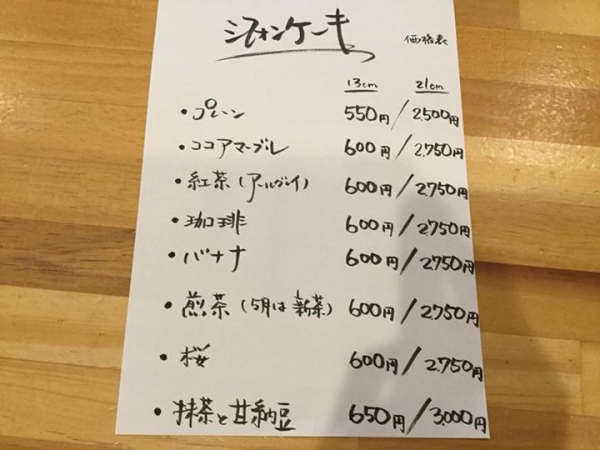 シフォンケーキ 価格表
13cm 21cm
・プレーン 550円/2,500円
・ココアマーブル 600円/2,750円
・紅茶(アールグレイ) 600円/2,750円
・珈琲 600円/2,750円
・バナナ 600円/2,750円
・煎茶(5月は新茶) 600円/2,750円
・桜 600円/2,750円
・抹茶と甘納豆 650円/3,000円